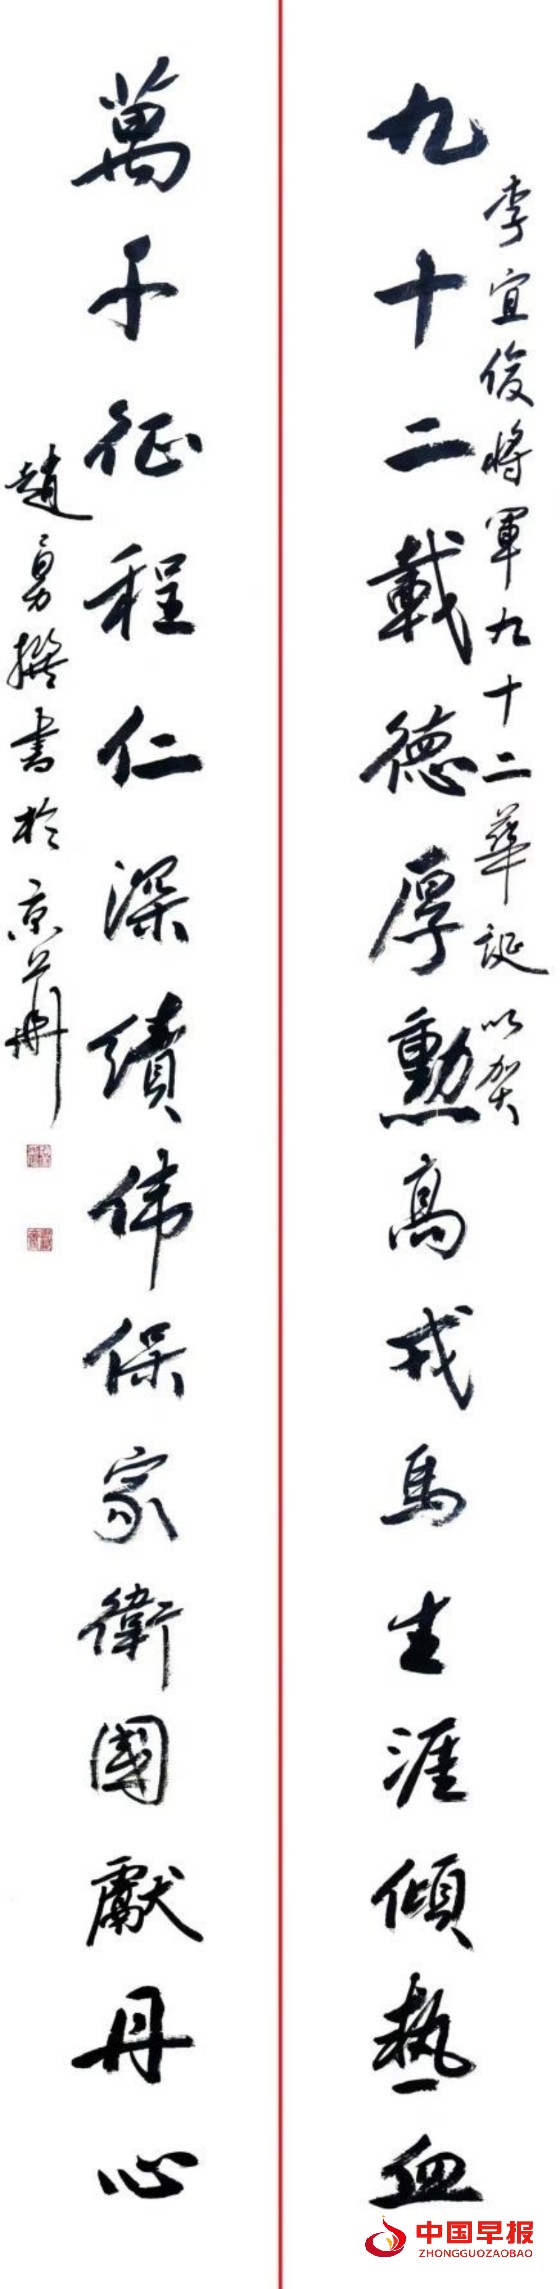 李宜俊将軍九十二華誕以贺
九十二載德厚勳高戎馬生涯傾热血
萬千征程仁深績伟保家衛國獻丹心
趙勇撰書於京華
中国早报
ZHONGGUOZAOBAO